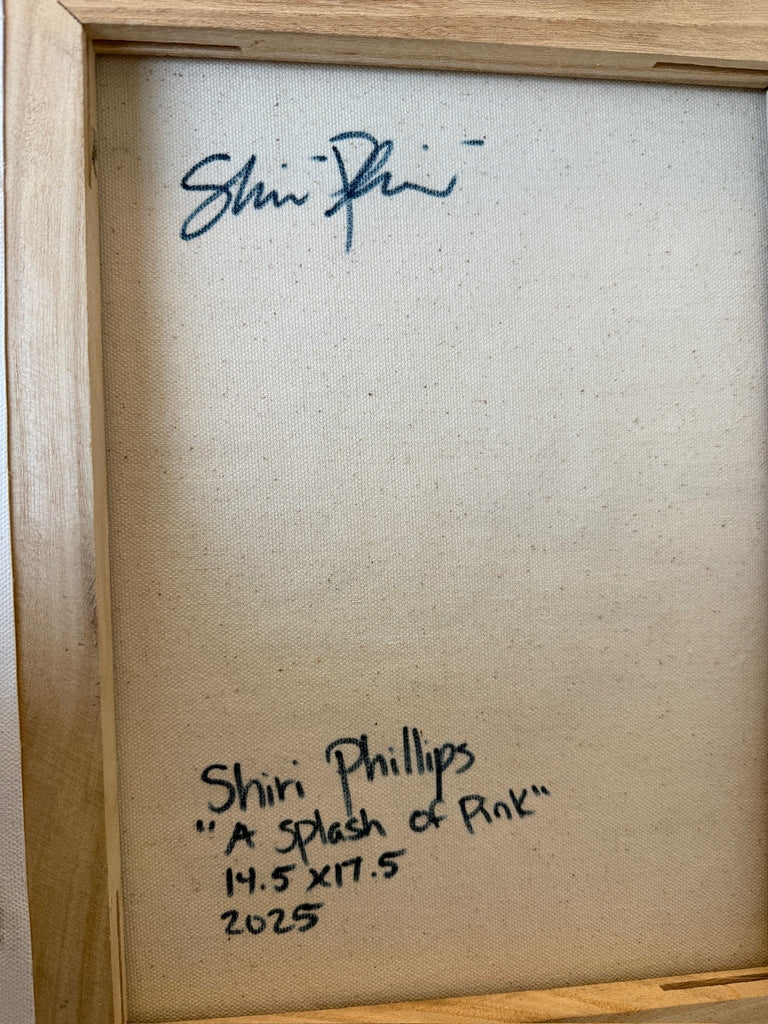 Shiri Phi
Shiri Phillips
"A Splash of Pink"
14.5 x 17.5
2025